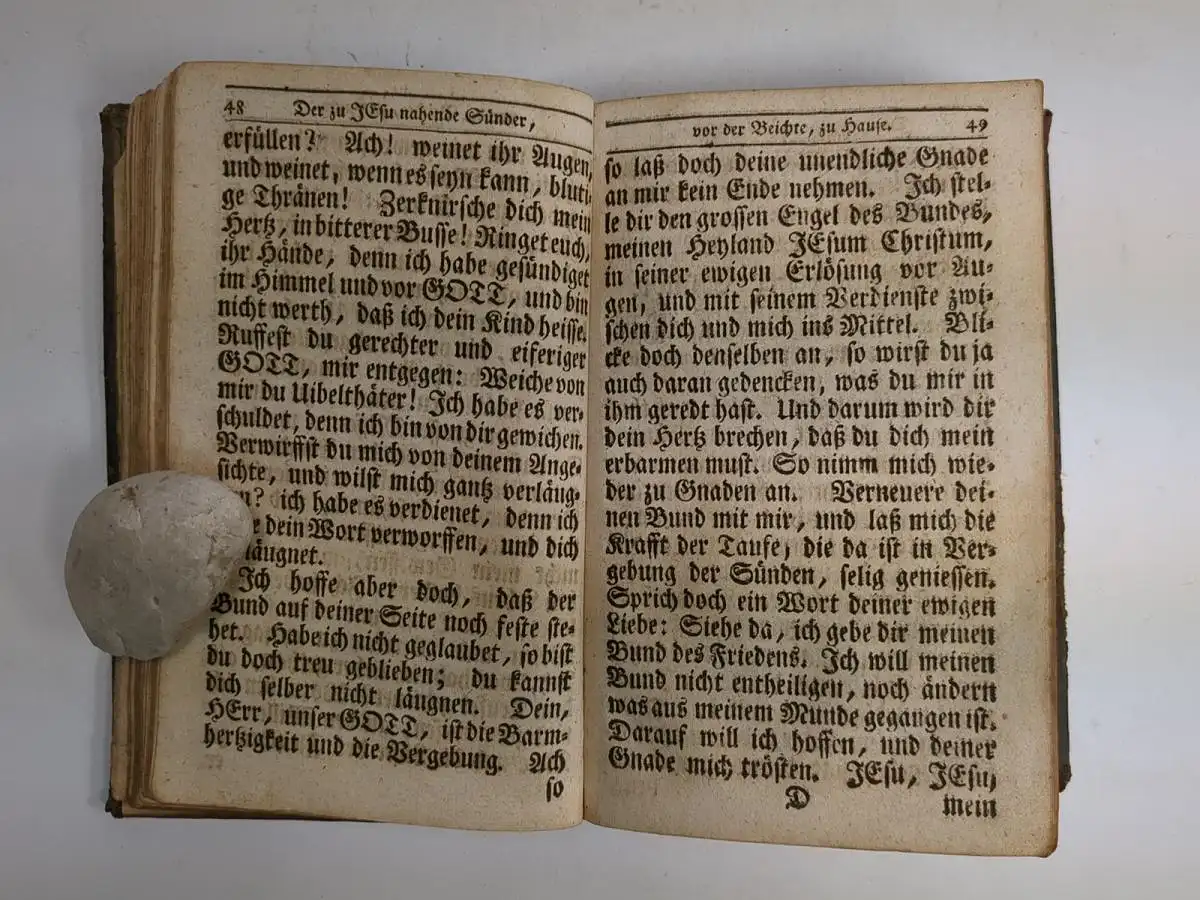 48 Der zu JEsu nahende Sünder,
erfüllen? Ach! weinet ihr Augen,
und weinet, wenn es seyn kann, bluti-
ge Thränen! Zerknirsche dich mein
Hertz, in bitterer Busse! Ringet euch,
ihr Hände, denn ich habe gesündiget
im Himmel und vor GOTT, und bin
nicht werth, daß ich dein Kind heisse.
Ruffest du gerechter und eiferiger
GOTT, mir entgegen: Weiche von
mir du Uibelthäter! Ich habe es ver-
schuldet, denn ich bin von dir gewichen.
Verwirffst du mich von deinem Ange-
sichte, und wilst mich gantz verläug-
ich habe es verdienet, denn ich
dein Wort verworffen, und dich
läugnet.
Ich hoffe aber doch, daß der
Bund auf deiner Seite noch feste ste-
het. Habe ich nicht geglaubet, so bist
du doch treu geblieben; du kannst
dich selber nicht läugnen. Dein,
HErr, unser GOTT, ist die Barm-
hertzigkeit und die Vergebung. Ach
so
vor der Beichte, zu Hause. 49
so laß doch deine unendliche Gnade
an mir kein Ende nehmen. Ich stel-
le dir den grossen Engel des Bundes,
meinen Heyland JEsum Christum,
in seiner ewigen Erlösung vor Au-
gen, und mit seinem Verdienste zwi-
schen dich und mich ins Mittel. Bli-
cke doch denselben an, so wirst du ja
auch daran gedencken, was du mir in
ihm geredt hast. Und darum wird dir
dein Hertz brechen, daß du dich mein
erbarmen must. So nimm mich wie-
der zu Gnaden an. Verneuere dei-
nen Bund mit mir, und laß mich die
Krafft der Taufe, die da ist in Ver-
gebung der Sünden, selig geniessen.
Sprich doch ein Wort deiner ewigen
Liebe: Siehe da, ich gebe dir meinen
Bund des Friedens. Ich will meinen
Bund nicht entheiligen, noch ändern
was aus meinem Munde gegangen ist.
Darauf will ich hoffen, und deiner
Gnade mich trösten. JEsu, JEsu,
D mein